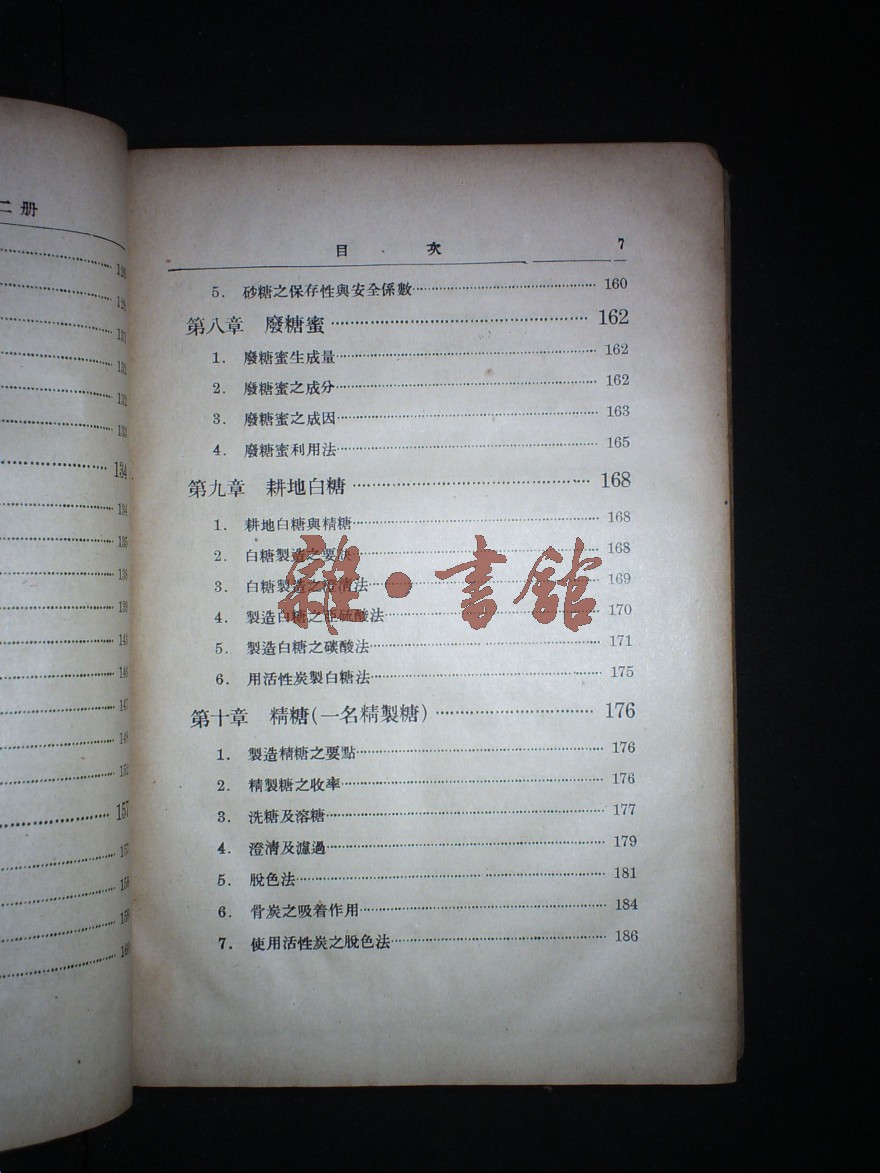 二册
126
128
131
131
132
133
134
134
135
138
139
143
146
147
148
152
157
157
158
159
160
目 次 7
5. 砂糖之保存性與安全係數 160
第八章 廢糖蜜 162
1. 廢糖蜜生成量 162
2. 廢糖蜜之成分 162
3. 廢糖蜜之成因 163
4. 廢糖蜜利用法 165
第九章 耕地白糖 168
1. 耕地白糖與精糖 168
2. 白糖製造之要訣 168
3. 白糖製造之澄清法 169
4. 製造白糖之亞硫酸法 170
5. 製造白糖之碳酸法 171
6. 用活性炭製白糖法 175
第十章 精糖(一名精製糖) 176
1. 製造精糖之要點 176
2. 精製糖之收率 176
3. 洗糖及溶糖 177
4. 澄清及濾過 179
5. 脫色法 181
6. 骨炭之吸着作用 184
7. 使用活性炭之脫色法 186
雜·書館